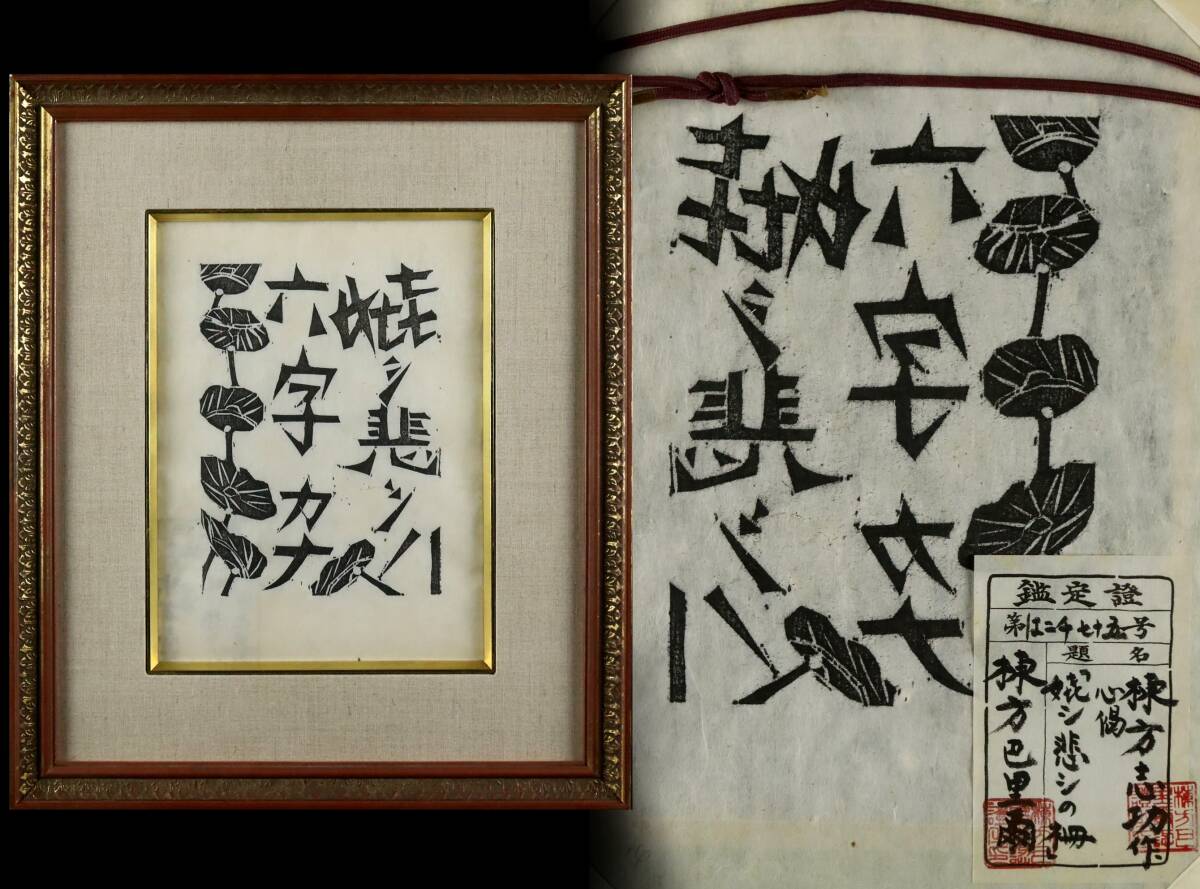 嬉シ悲シハ
六字カナ
嬉シ悲シハ
六字カナ
鑑定證
第ほ二千七十五号
題名
棟方志功作
心偈
「嬉シ悲シの柵」
棟方巴里爾